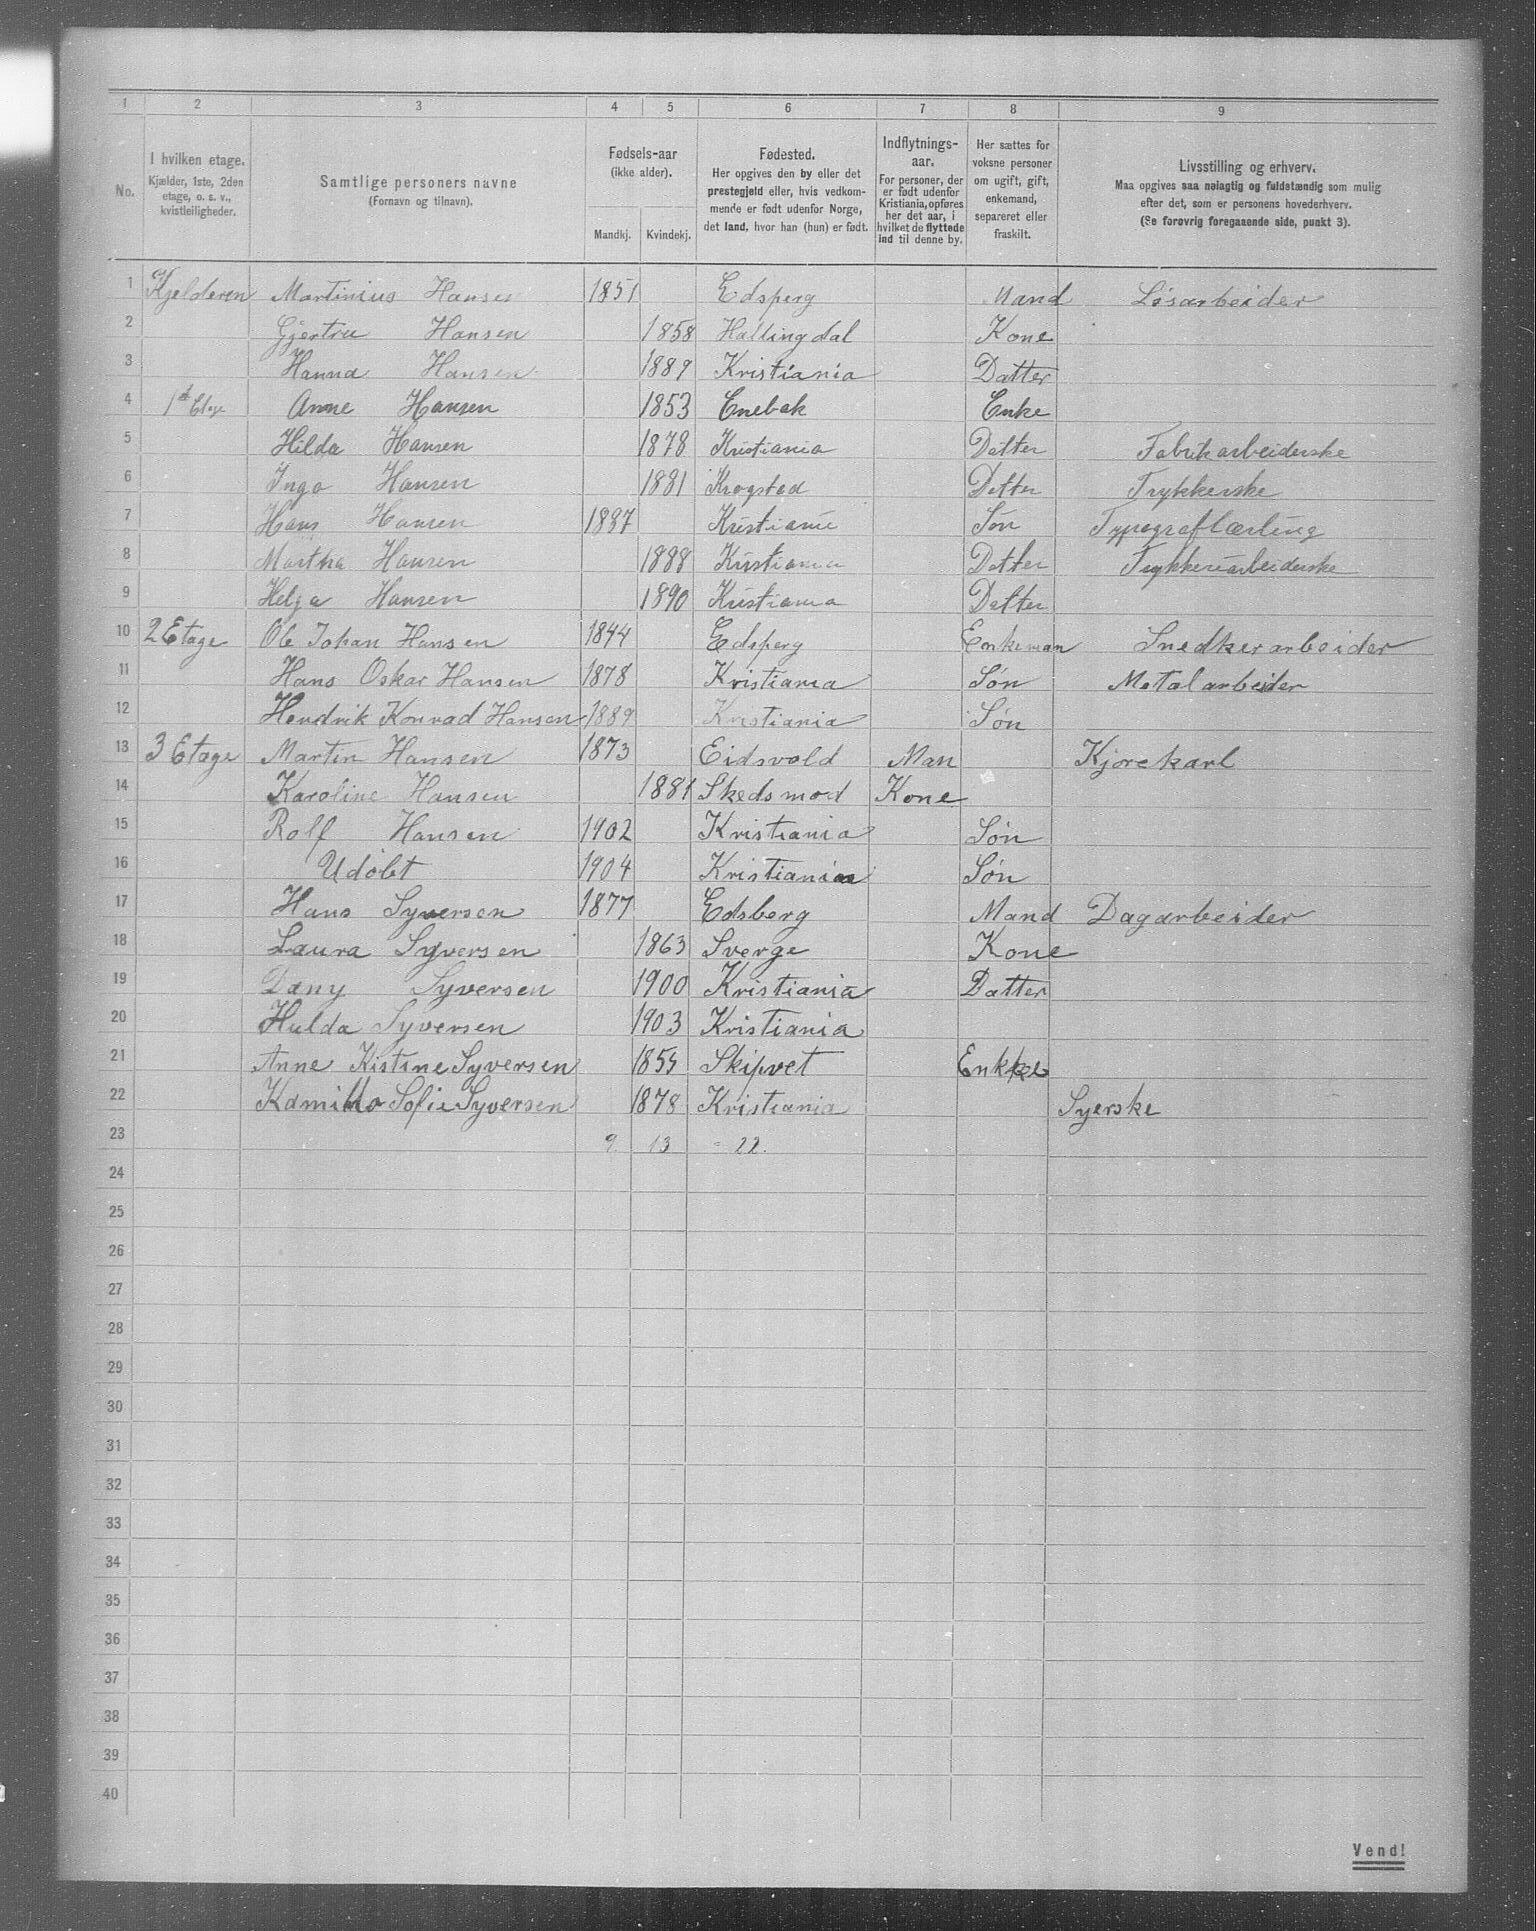 1 2 3 4 5 6 7 8 9
No.
I hvilken etage.
Kjælder, 1ste, 2den
etage, o. s. v.,
kvistleiligheder.
Samtlige personers navne
(Fornavn og tilnavn).
Fødsels-aar
(ikke alder).
Mandkj. Kvindekj.
Fødested.
Her opgives den by eller det
prestegjeld eller, hvis vedkom-
mende er født udenfor Norge,
det land, hvor han (hun) er født.
Indflytnings-
aar.
For personer, der
er født udenfor
Kristiania, opføres
her det aar, i
hvilket de flyttede
ind til denne by.
Her sættes for
voksne personer
om ugift, gift,
enkemand,
separeret eller
fraskilt.
Livsstilling og erhverv.
Maa opgives saa nøiagtig og fuldstændig som mulig
efter det, som er personens hovederhverv.
(Se forøvrig foregaaende side, punkt 3).
1 Kjelderen Martinius Hansen 1851 Edsperg Mand Løsarbeider
2 Gjertru Hansen 1858 Hallingdal Kone
3 Hanna Hansen 1889 Kristiania Datter
4 1st Etage Anne Hansen 1853 Enebak Enke
5 Hilda Hansen 1878 Kristiania Datter Fabrikarbeiderske
6 Inga Hansen 1881 Krogstad Datter Trykkerske
7 Hans Hansen 1887 Kristiania Søn Typograflærling
8 Martha Hansen 1888 Kristiania Datter Trykkeriarbeiderske
9 Helga Hansen 1890 Kristiania Datter
10 2 Etage Ole Johan Hansen 1844 Edsperg Enkeman Snedkerarbeider
11 Hans Oskar Hansen 1878 Kristiania Søn Metalarbeider
12 Hendrik Konrad Hansen 1889 Kristiania Søn
13 3 Etage Martin Hansen 1873 Eidsvold Man Kjørekarl
14 Karoline Hansen 1881 Skedsmod Kone
15 Rolf Hansen 1902 Kristiania Søn
16 Udøbt 1904 Kristiania Søn
17 Hans Syversen 1877 Edsberg Mand Dagarbeider
18 Laura Syversen 1863 Sverge Kone
19 Dany Syversen 1900 Kristiania Datter
20 Hulda Syversen 1903 Kristiania
21 Anne Kistine Syversen 1855 Skipvet Enkke
22 Kamilla Sofie Syversen 1878 Kristiania Syerske
23 9. 13 = 22.
24
25
26
27
28
29
30
31
32
33
34
35
36
37
38
39
40
Vend!